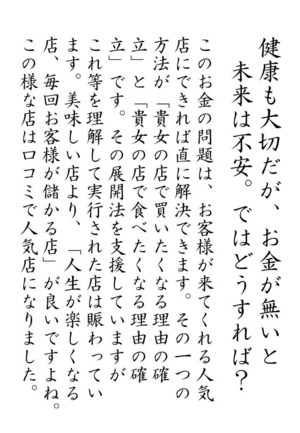 健康も大切だが、お金が無いと
未来は不安。ではどうすれば？
このお金の問題は、お客様が来てくれる人気
店にできれば直に解決できます。その一つの
方法が「貴女の店で買いたくなる理由の確
立」と「貴女の店で食べたくなる理由の確
立」です。その展開法を支援していますが
これ等を理解して実行された店は賑わってい
ます。美味しい店より、「人生が楽しくなる
店、毎回お客様が儲かる店」が良いですよね。
この様な店は口コミで人気店になりました。